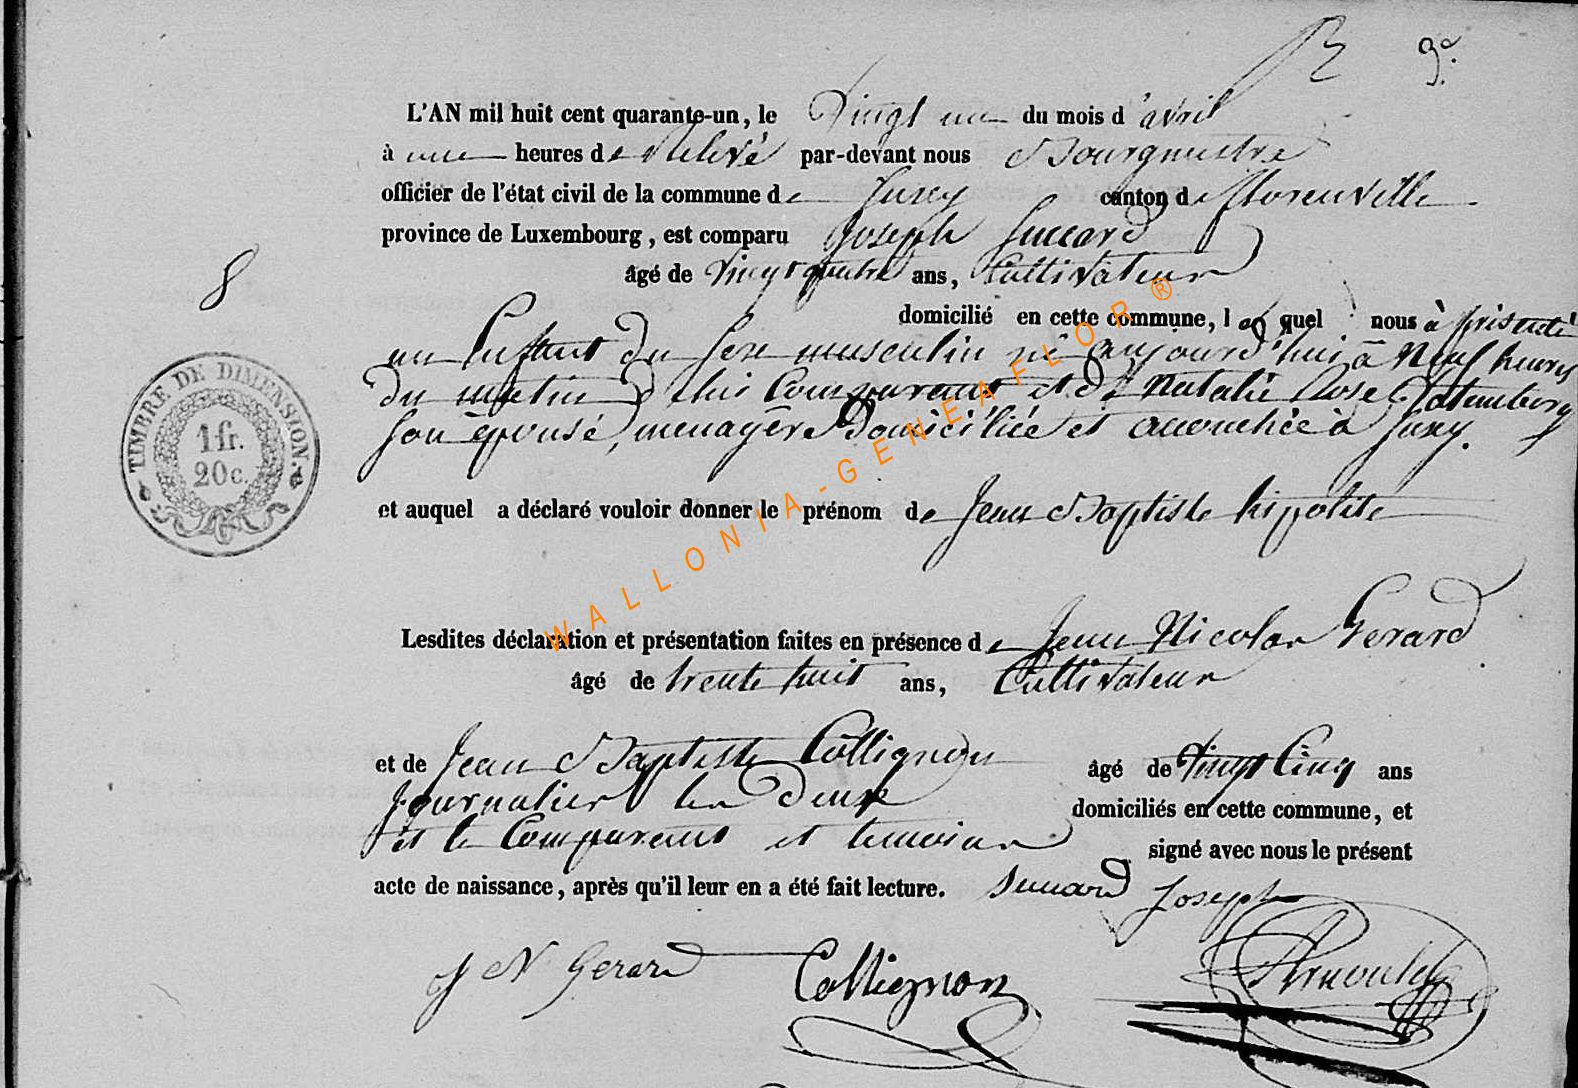 3º
L'AN mil huit cent quarante-un, le Vingt un du mois d'avril
à une heures de relevé par-devant nous Bourgmestre
officier de l'état civil de la commune de Suxy canton de florenville
province de Luxembourg, est comparu Joseph
âgé de Vingt quatre ans, Cultivateur
8
domicilié en cette commune, lequel nous à présenté
un Enfant du sexe masculin né aujourd'hui à Neuf heures
du matin de lui Comparant et de Natalie Rose
son épouse, menagère Domiciliée et accouchée à Suxy.
TIMBRE DE DIMENSION.
1 fr.
20 c.
et auquel a déclaré vouloir donner le prénom de Jean Baptiste hipolite
Lesdites déclaration et présentation faites en présence de Jean Nicolas Gerard
âgé de trente huit ans, Cultivateur
et de Jean Baptiste Collignon âgé de Vingt Cinq ans
Journalier les deux domiciliés en cette commune, et
et le Comparant et temoins signé avec nous le présent
acte de naissance, après qu'il leur en a été fait lecture. Joseph
J N Gerard Collignon Arnould
WALLONIA-GENEAFLOR®